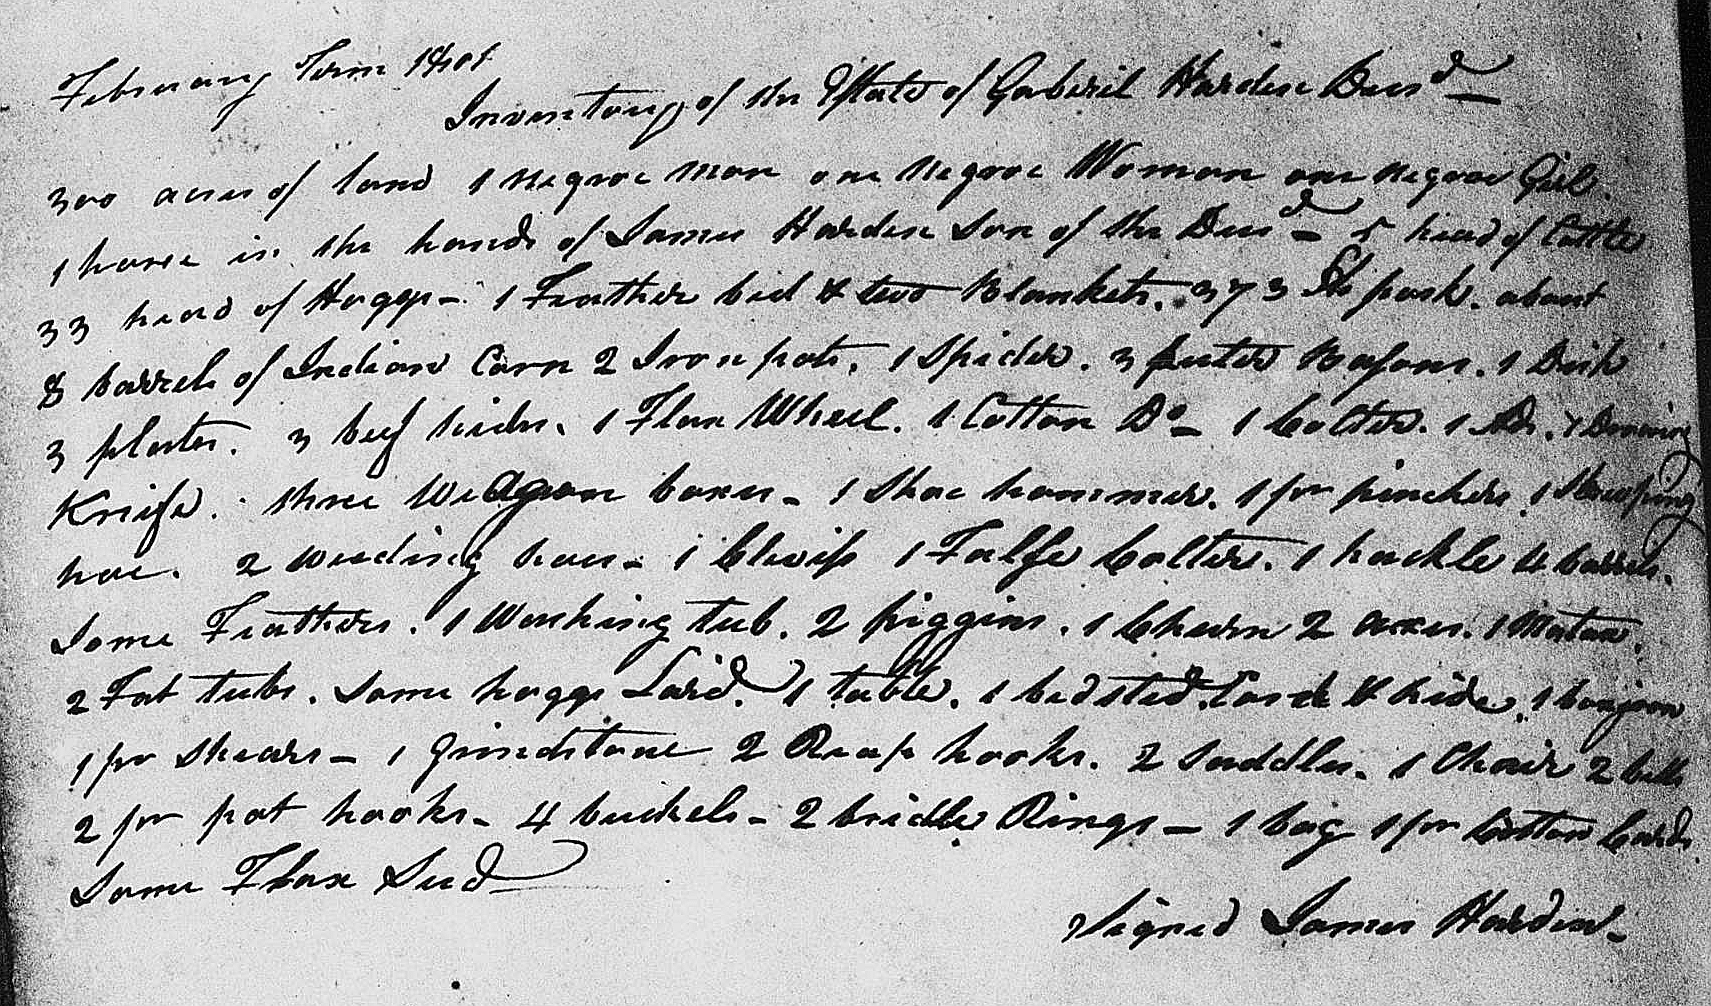 February Term 1801
Inventory of the Estate of Gaberil Harden Decsd
300 acres of land 1 negroe man one negroe Woman one negroe Girl.
1 horse in the hands of James Harden Son of the Decsd – 5 head of Cattle
33 head of Hoggs – 1 Feather bed & two Blankets. 373 lb pork. about
8 barrels of Indian Corn 2 Iron pots, 1 Spider. 3 puter Basons. 1 Dish
3 plates. 3 beef hides. 1 Flax Wheel. 1 Cotton Do – 1 Colter. 1 Adz. & Drawing
Knife. three Waggon boxes – 1 Shoe hammer. 1 pr pinchers. 1
hoe. 2 weeding hoes – 1 Clevis 1 False Colter. 1 hackle 4 barrels.
Some Feathers. 1 Washing tub. 2 piggins. 1 Churn 2 axes. 1
2 Fat tubs. Some hoggs Lard. 1 table. 1 bedsted Cord & hide. 1
1 pr Shears – 1 Grindstone 2 Reap hooks. 2 Saddles. 1 Chair 2 bells
2 pr pot hooks – 4 buckels – 2 bridle Rings – 1 bag 1 pr Cotton Cards.
Some Flax Seed
Signed James Harden –